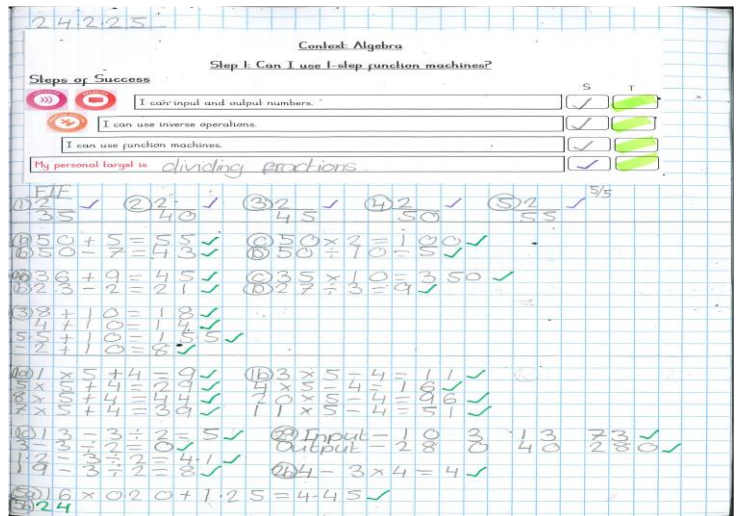 24.2.25
Context: Algebra
Step 1: Can I use 1-step function machines?
Steps of Success
S T
I can input and output numbers.
I can use inverse operations.
I can use function machines.
My personal target is dividing fractions.
FIF 5/5
① 2/35 ✓ ② 2/40 ✓ ③ 2/45 ✓ ④ 2/50 ✓ ⑤ 2/55 ✓
50 + 5 = 55 ✓ ⓒ 50 × 2 = 100 ✓
ⓑ 50 - 7 = 43 ✓ ⓓ 50 ÷ 10 = 5 ✓
36 + 9 = 45 ✓ ⓒ 35 × 10 = 350 ✓
ⓑ 23 - 2 = 21 ✓ ⓓ 27 ÷ 3 = 9 ✓
③ 8 + 10 = 18 ✓
4 + 10 = 14 ✓
5.5 + 10 = 15.5 ✓
-2 + 10 = 8 ✓
1a) 1 × 5 + 4 = 9 ✓ 1b) 3 × 5 - 4 = 11 ✓
5 × 5 + 4 = 29 ✓ 4 × 5 - 4 = 16 ✓
8 × 5 + 4 = 44 ✓ 20 × 5 - 4 = 96 ✓
7 × 5 + 4 = 39 ✓ 11 × 5 - 4 = 51 ✓
1c) 13 - 3 ÷ 2 = 5 ✓ 2a) Input = 10 3 13 73 ✓
3 - 3 ÷ 2 = 0 ✓ Output = 28 0 40 280 ✓
11.2 - 3 ÷ 2 = 4.1 ✓
19 - 3 ÷ 2 = 8 ✓ 2b) 4 - 3 × 4 = 4 ✓
5a) 16 × 0.20 + 1.25 = 4.45 ✓
5b) 24